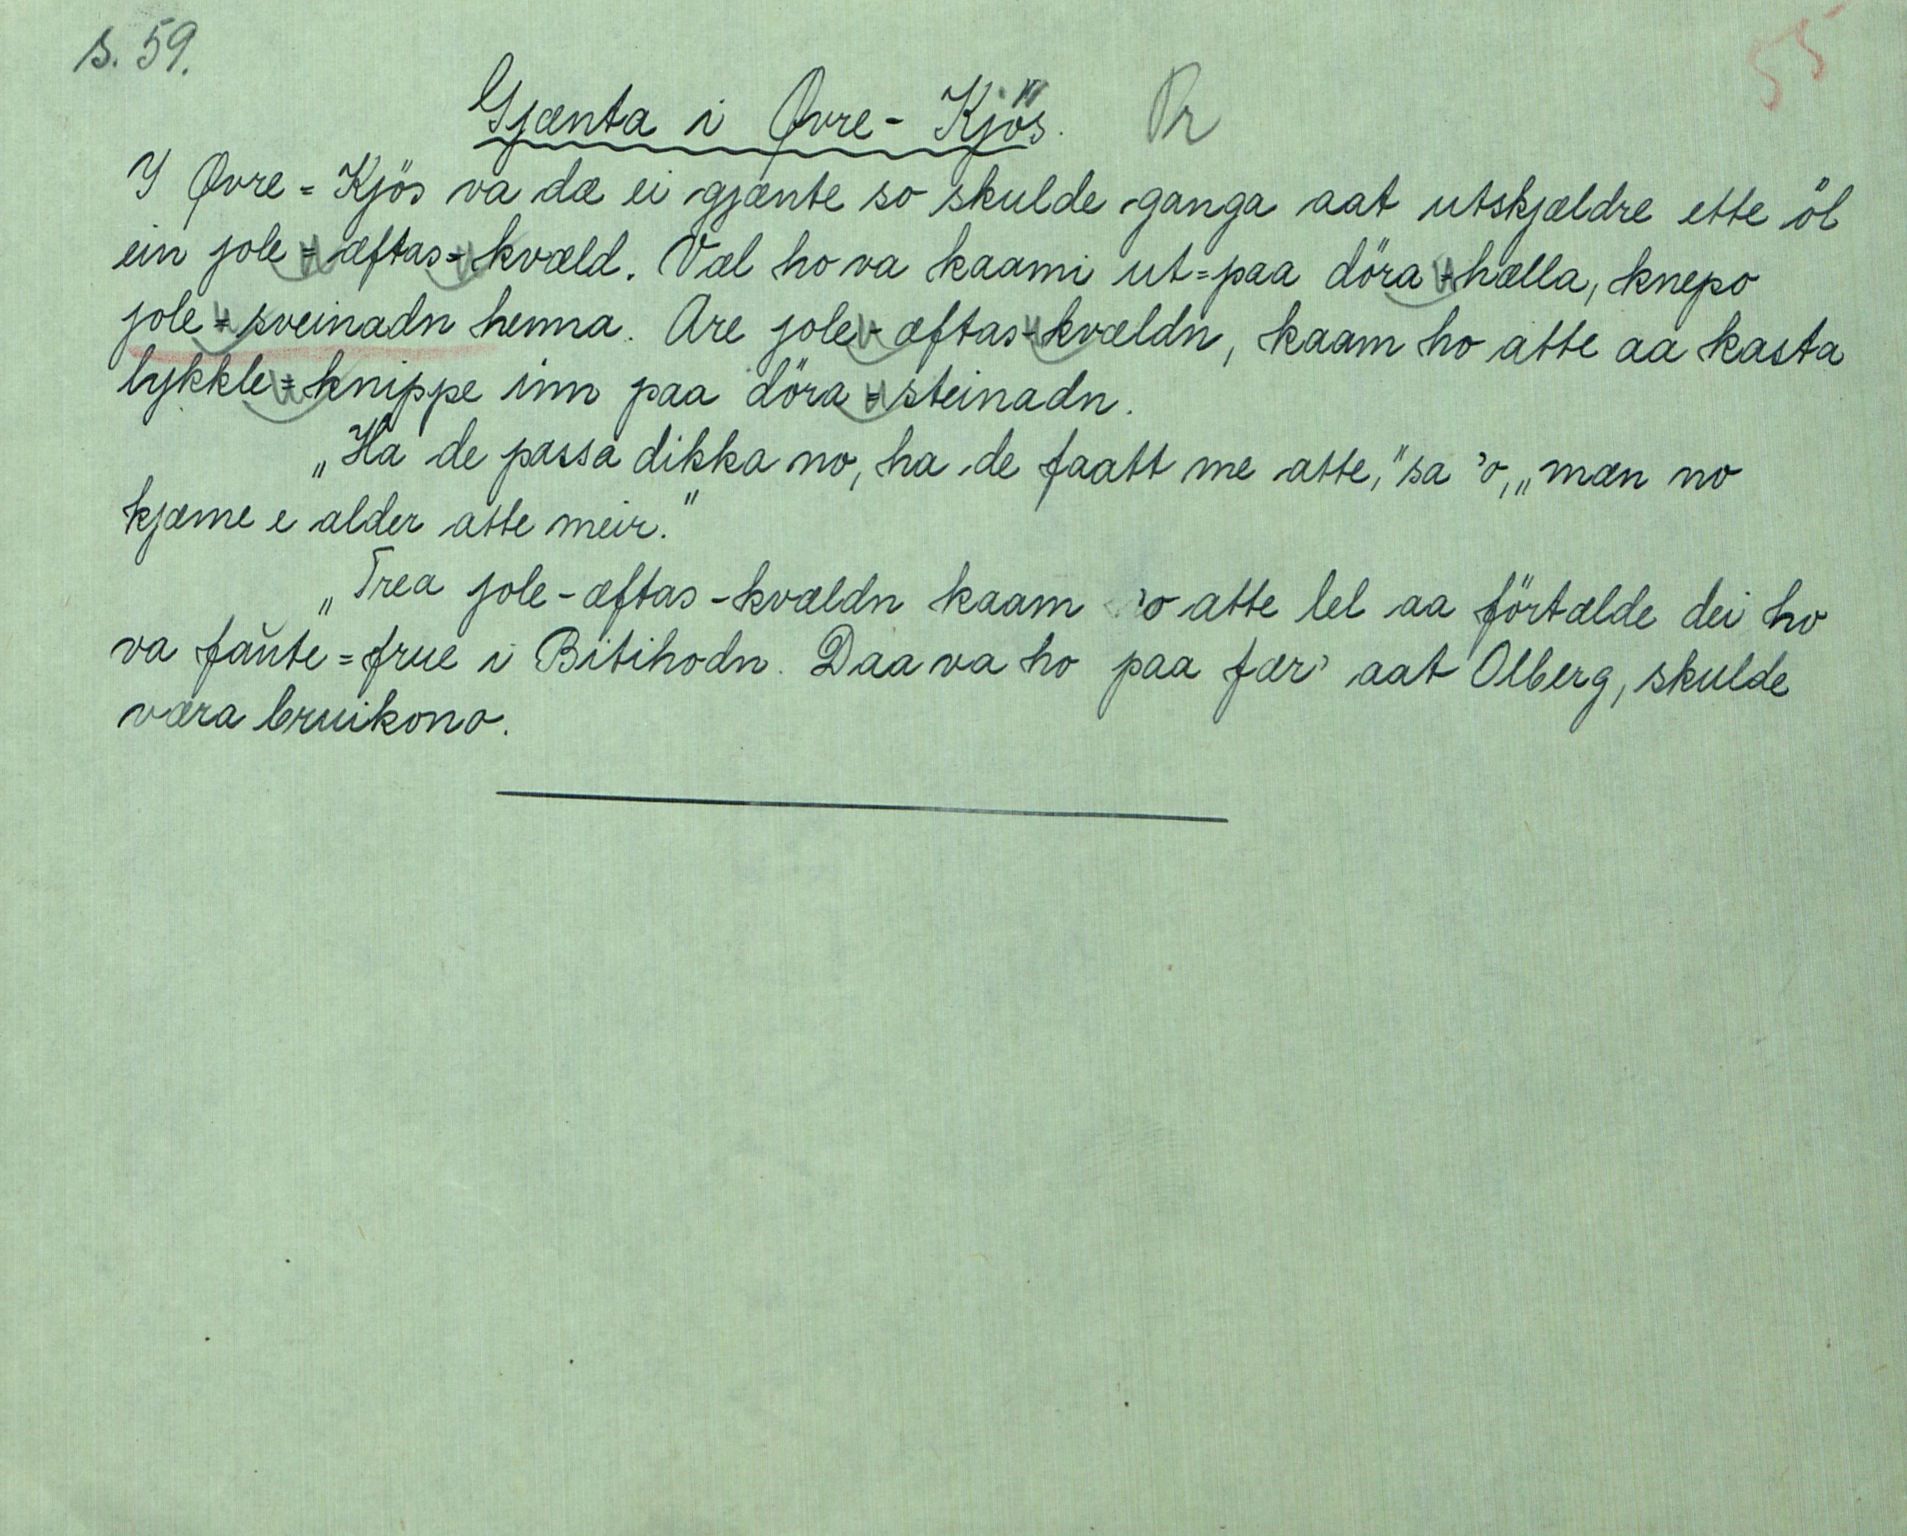 s. 59.
55
Gjænta i Øvre-Kjös. Pr
I Øvre=Kjös va dæ ei gjænte so skulde ganga aat utskjældre ette öl
ein jole=æftas=kvæld. Væl ho va kaami ut=paa döra=hælla, knepo
jole=sveinadn henna. Are jole-æftas-kvældn, kaam ho atte aa kasta
lykkle=knippe inn paa döra=steinadn.
„Ha de passa dikka no, ha de faatt me atte," sa 'o, „mæn no
kjæme e alder atte meir."
„Trea jole-æftas-kvældn kaam 'o atte lel aa förtælde dei ho
va faŭte=frue i Bitihodn. Daa va ho paa fær' aat Olberg, skulde
væra bruikono.